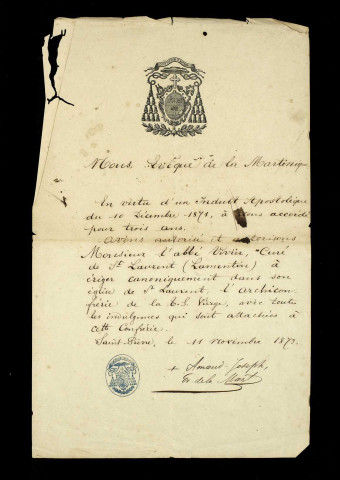 Nous, Evêque de la Martinique
En vertu d'un Indult Apostolique
du 10 Décembre 1871, à Nous accordé
pour trois ans,
avons autorisé et autorisons
Monsieur l'abbé Vivier, Curé
de St Laurent (Lamentin) à
ériger canoniquement dans son
église de St Laurent, l'Archicon
frérie de la T. S. Vierge, avec toutes
les indulgences qui sont attachées à
cette Confrérie.
Saint-Pierre, le 11 novembre 1873.
+ Amand-Joseph,
Ev. de la Mart.